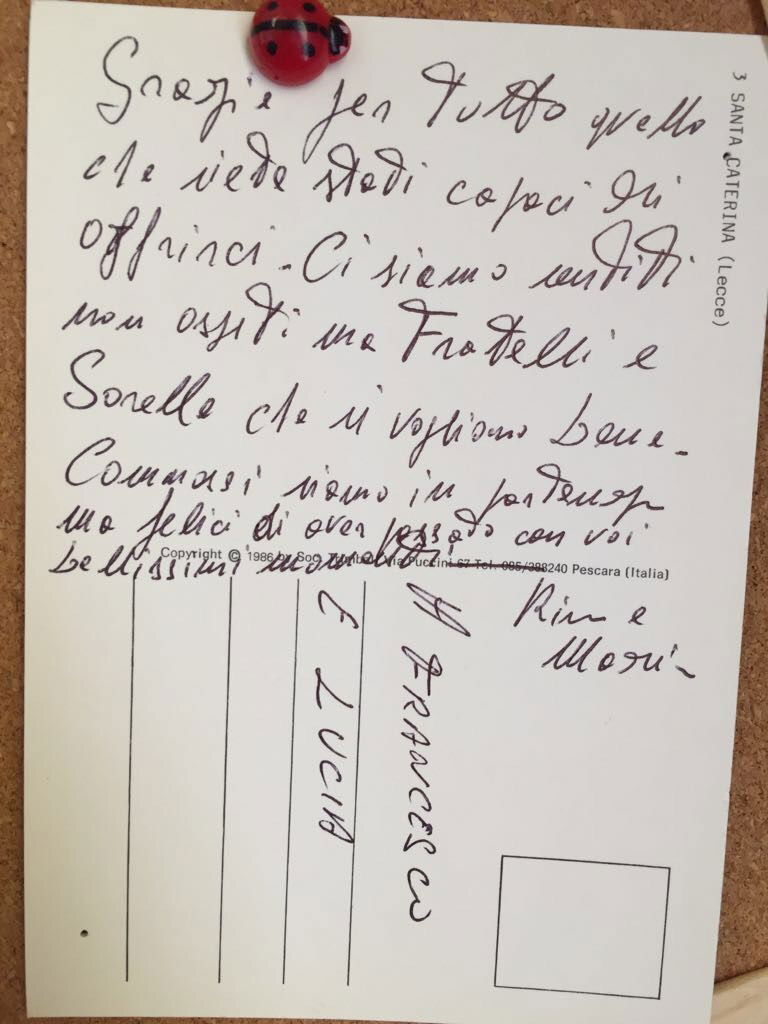 Grazie per tutto quello
che siete stati capaci di
offrirci. Ci siamo sentiti
non ospiti ma Fratelli e
Sorelle che si vogliono bene.
Commossi siamo in partenza
ma felici di aver passato con voi
bellissimi momenti
Copyright © 1986 by Soc. Via Puccini 67 Tel. 085/388240 Pescara (Italia)
e
A FRANCESCO
E LUCIA
3 SANTA CATERINA (Lecce)